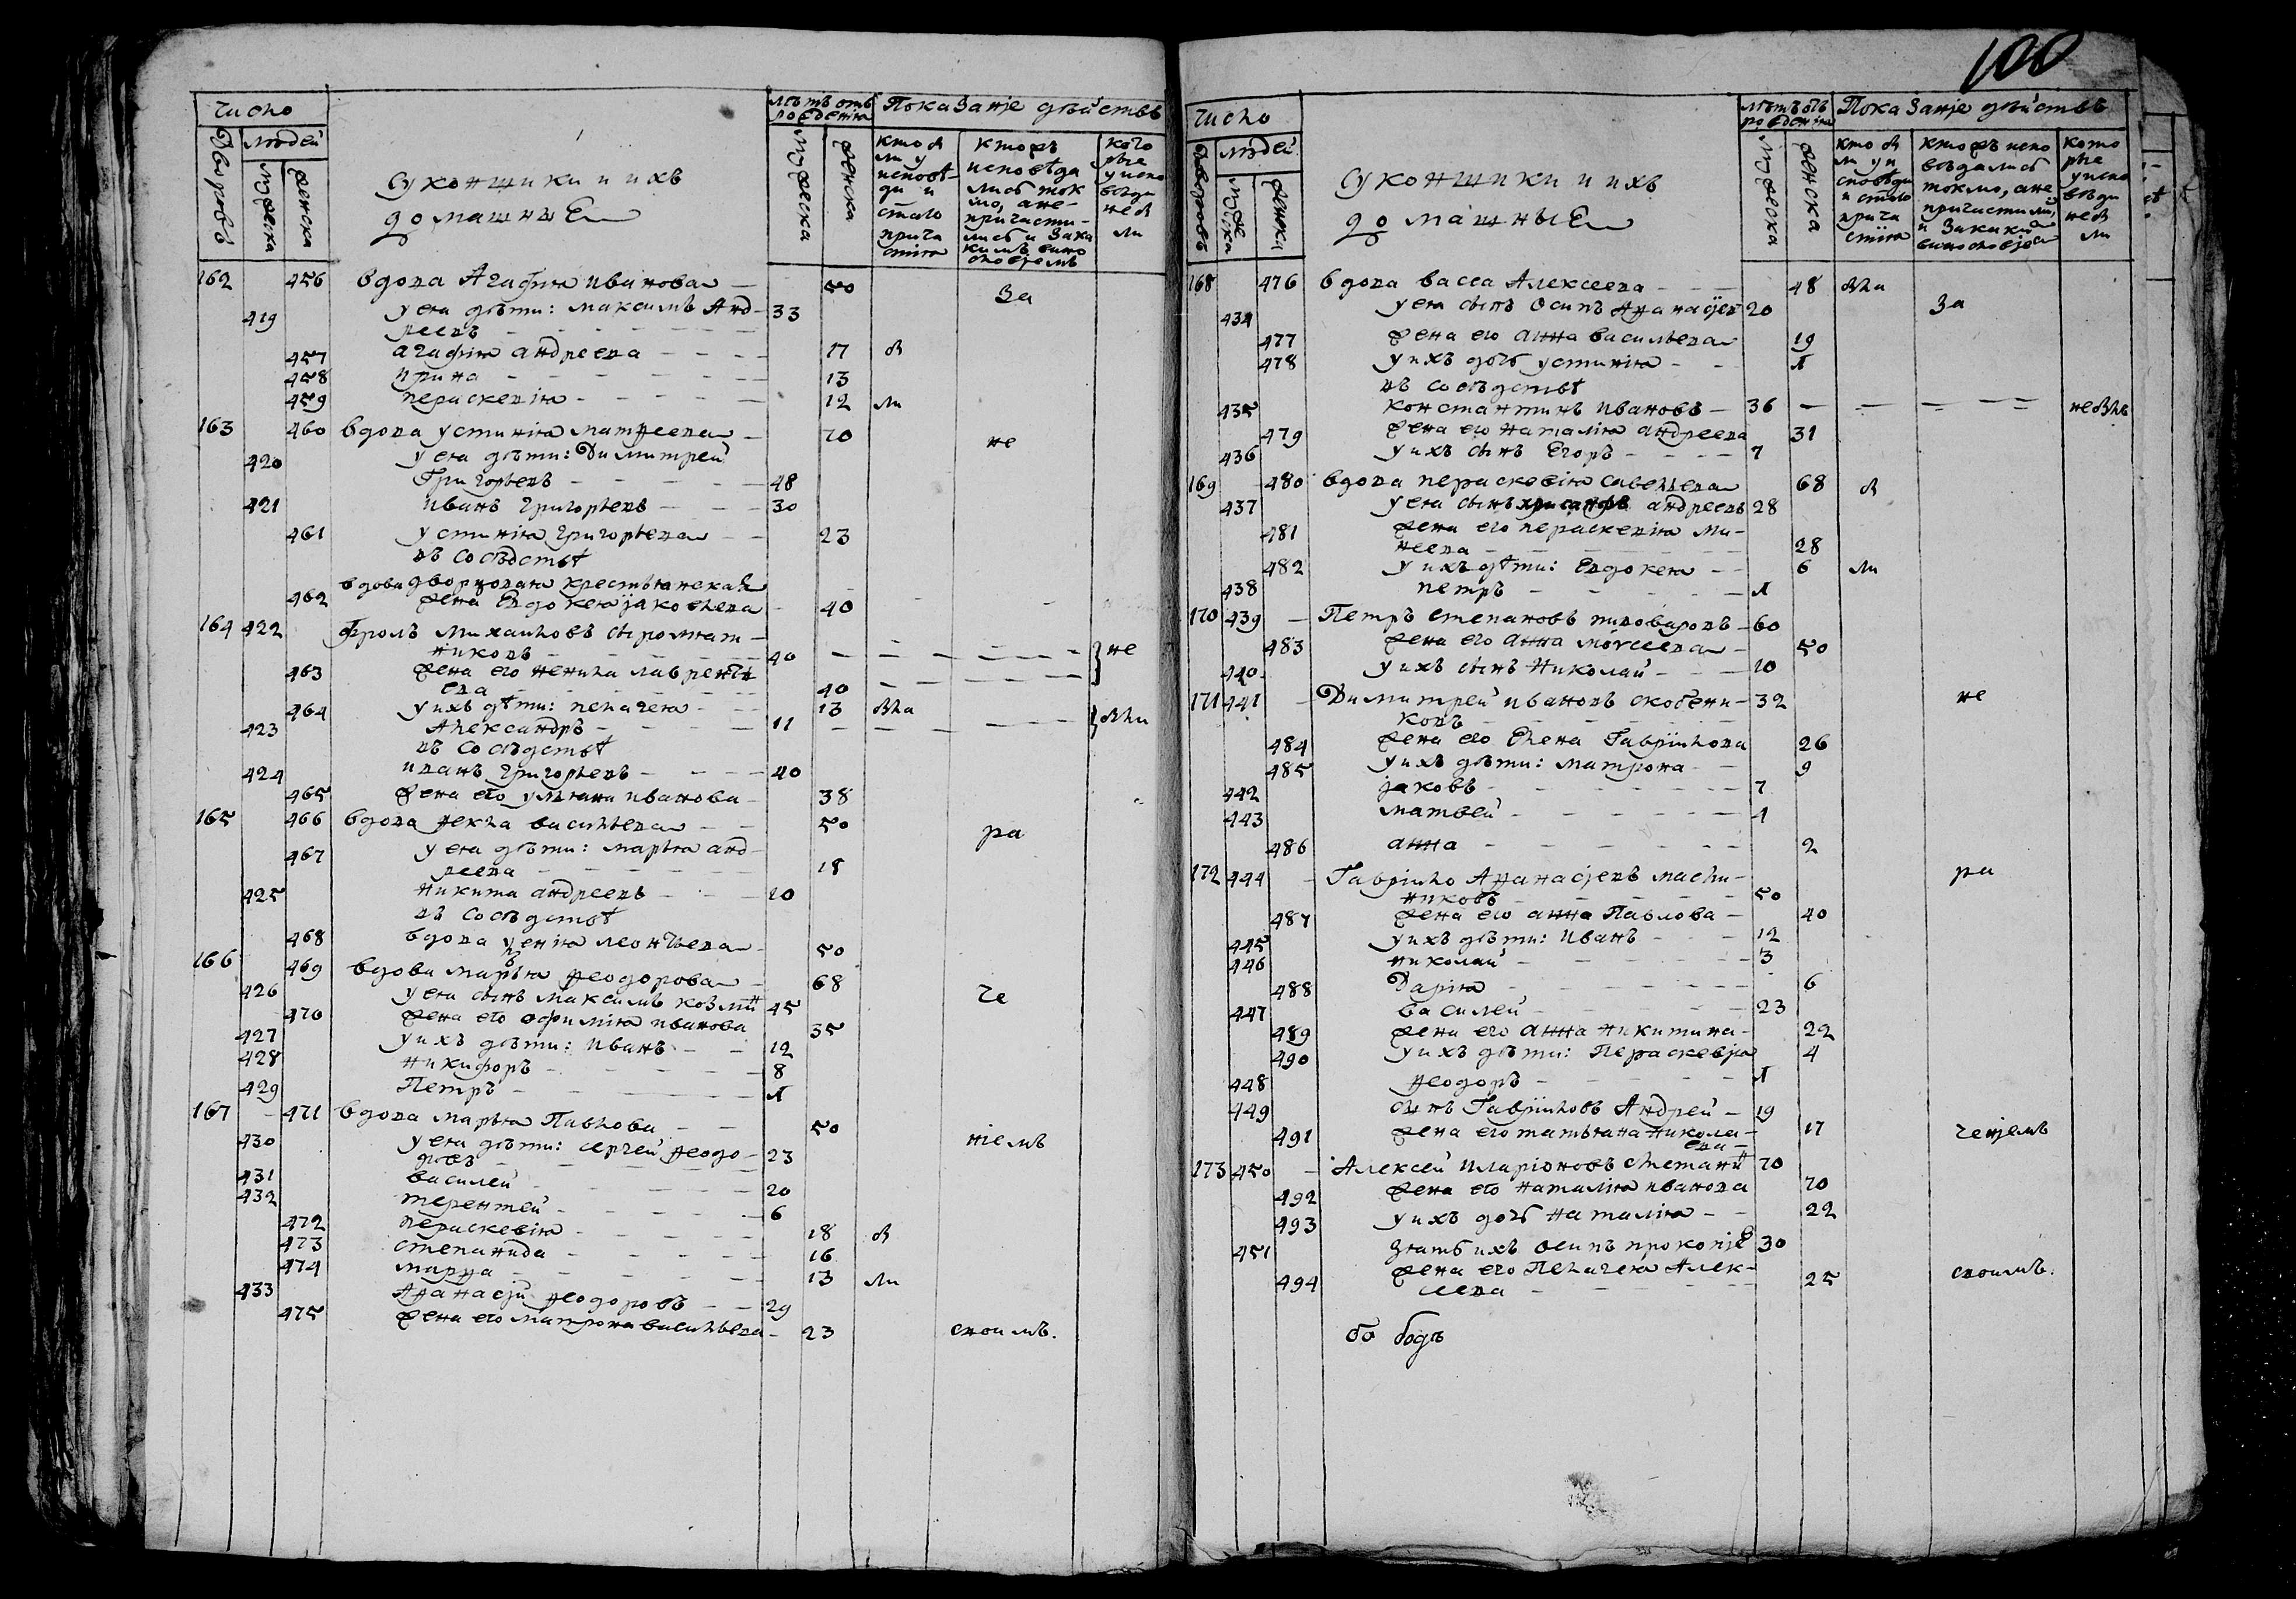 100
число
дворовъ
людей
мужеска
женска
суконщики и ихъ
домашные
лѣтъ отъ
рожденїя
мужеска
женска
Показанїе дѣйствъ
кто бы
ли у
исповѣ-
ди и
святаго
прича
стїя
ктожъ
исповѣда
лись ток
мо, а не-
причасти-
лись и за ка
кимъ вино
словіемъ
кото
рые
у испо
вѣди
не бы
ли
162 456 вдова Агафїя иванова — 50 за
419 у ея дѣти: максимъ Анд- 33
реевъ
457 агафїя андреева 17 бы
458 ирина 13
459 параскевїя 12 ли
163 460 вдова устинїя матфеева 70 не
420 у ея дѣти: Димитрей
Григорьевъ 48
421 иванъ григорьевъ 30
461 устинїя григорьева 23
въ сосѣдствѣ
вдова дворцовая крестьянская
462 жена Евдокея яковлева 40
164 422 фролъ михаиловъ сыромят-
никовъ 40 не
463 жена его ненила лаврентїи
ева 40
464 у ихъ дѣти: пелагея 13 была
423 Александръ 11 были
въ сосѣдствѣ
424 иванъ григорьевъ 40
465 жена его улїана иванова 38
165 466 вдова фекла васильева 50 ра
467 у ея дѣти: марья анд-
реева 18
425 никита андреевъ 20
въ сосѣдствѣ
468 вдова ксенїя леонтьева 50
166 469 вдова марья феодорова 68 че
426 у ея сынъ максимъ козмин 45
470 жена его офимїя иванова 35
427 у ихъ дѣти: иванъ 12
428 никифоръ 8
429 Петръ 1
167 471 вдова марья Павлова 50 нїемъ
430 у ея дѣти: сергей феодо- 23
ровъ
431 василей 20
432 терентей 6
472 параскевїя 18 бы
473 степанида 16
474 марфа 13 ли
433 Афанасїй феодоровъ 29
475 жена его матрона васильева 23 своимъ.
число
дворовъ
людей
мужеска
женска
суконщики и ихъ
домашные
лѣтъ отъ
рожденїя
мужеска
женска
Показанїе дѣйствъ
кто бы
ли у и
сповѣди
и святаго
прича
стїя
ктожъ испо
вѣдались
токмо, а не
причастили,
и за каким
винословіем
кото
рые
у испо
вѣди
не бы
ли
168 476 вдова васса Алексеева 48 была
434 у ея сынъ Осипъ Афанасїев 20 за
477 жена его анна васильева 19
478 у ихъ дочь устинїя 1
въ сосѣдствѣ
435 константинъ ивановъ 36 не были
479 жена его наталїя андреева 31
436 у ихъ сынъ Егоръ 7
169 480 вдова параскевїя савельева 68 бы
437 у ея сынъ хрисанфъ андреевъ 28
481 жена его параскевїя ми-
неева 28
482 у ихъ дѣти: Евдокея 6 ли
438 петръ 1
170 439 Петръ степановъ пивоваровъ 60
483 жена его анна моѵсеева 50
440 у ихъ сынъ николай 10
171 441 Димитрей ивановъ скобени- 32 не
ковъ
484 жена его Елена Гаврїилова 26
485 у ихъ дѣти: матрона 9
442 яковъ 7
443 матвей 1
486 анна 2
172 444 Гаврїило Афанасїевъ масли- ра
никовъ 50
487 жена его анна Павлова 40
445 у ихъ дѣти: иванъ 12
446 николай 3
488 Дарїя 6
447 василей 23
489 жена его анна никитина 22
490 у ихъ дѣти: Параскевїя 4
448 феодоръ 1
449 сынъ Гаврїиловъ Андрей 19
491 жена его татьяна никола- 17 ченїемъ
ева
173 450 Алексей иларїоновъ 70
492 жена его наталїя иванова 70
493 у ихъ дочь наталїя 22
451 зять ихъ осипъ прокопїев 30
494 жена его Пелагея Алек- 25 своимъ.
сеева